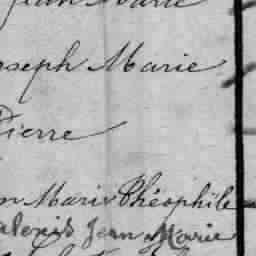 Jean Marie
oseph Marie
Pierre
n Marie Théophile
alexis Jean Marie